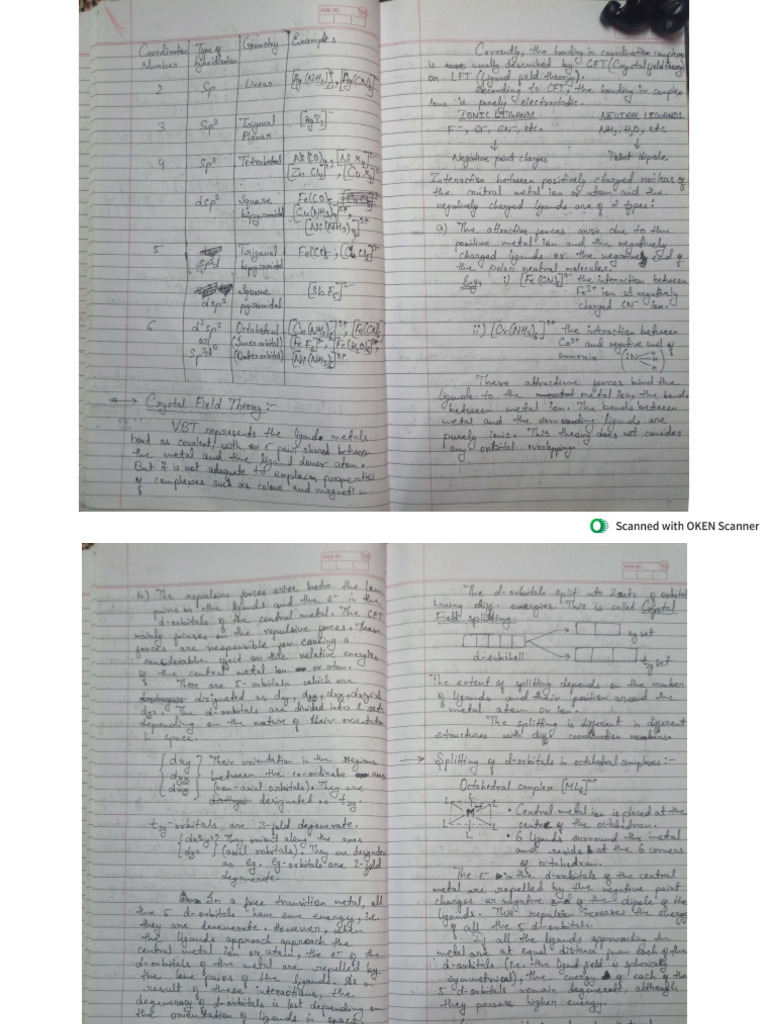 Coordination Type of Geometry Examples
Number hybridisation
2 sp Linear [Ag(NH3)2]+, [Ag(CN)2]-
3 sp2 Trigonal [HgI3]-
Planar
4 sp3 Tetrahedral
dsp2 Square
bipyramidal
5 Trigonal Fe(CO)5
sp3d bipyramidal
Square
dsp3 pyramidal
6 d2sp3 Octahedral
or (Inner orbital)
sp3d2 (Outer orbital)
[Ni(NH3)6]2+
* → Crystal Field Theory :-
VBT represents the metals
bond as covalent with an e- pair shared between
the metal and the ligand donor atom.
But it is not adequate to explain properties
of complexes such as colour and magnetism
Currently, the bonding in coordination complexes
is usually described by CFT (Crystal field theory)
or LFT (Ligand field theory).
According to CFT, the bonding in complex
ions is purely electrostatic.
IONIC LIGANDS NEUTRAL LIGANDS
F-, Cl-, CN-, etc. NH3, H2O, etc
↓ ↓
Negative point charges Point dipole
Interaction between positively charged nucleus of
the central metal ion or atom and the
negatively charged ligands are of 2 types:
a) The attractive forces arise due to the
positive metal ion and the negatively
charged ligands or the negatively end of
the polar neutral molecules.
E.g. i) [Fe(CN)6]3- the interaction between
Fe3+ ion is negatively
charged CN- ion.
ii) [Cr(NH3)6]3+ the interaction between
Co3+ and negative end of
ammonia
These attractive forces bind the
ligands to the metal ion, the bonds
between metal ion. The bonds between
metal and the surrounding ligands are
purely ionic. This theory does not consider
any orbital overlapping.
Scanned with OKEN Scanner
b) The repulsive forces arise betn the lone
pairs on the ligands and the e- in the
d-orbitals of the central metal. The CFT
mainly focuses on the repulsive forces. These
forces are responsible for causing a
considerable effect on the relative energies
of the central metal ion or atom.
There are 5-orbitals which are
designated as dxy, dyz, dxz, dx2-y2 &
dz2. The d-orbitals are divided into 2 sets
depending on the nature of their orientation
in space.
{dxy} Their orientation in the regions
{dyz} between the co-ordinate axes
{dxz} (non-axial orbitals). They are
designated as t2g.
t2g-orbitals are 3-fold degenerate.
{dx2-y2} They orient along the axes
{dz2} (axial orbitals). They are designated
as eg. eg-orbitals are 2-fold
degenerate.
In a free transition metal, all
the 5 d-orbitals have same energy, i.e.
they are degenerate. However, when
the ligands approach approach the
central metal ion or atom, the e- of the
d-orbitals of the metal are repelled by
the lone pairs of the ligands. As a
result of these interactions, the
degeneracy of d-orbitals is lost depending on
the orientation of ligands in space.
The d-orbitals split into 2 sets of orbital
having diff. energies. This is called Crystal
Field splitting.
eg set
d-subshell
t2g set
The extent of splitting depends on the number
of ligands and their position around the
metal atom or ion.
The splitting is different in different
structures with diff. coordination numbers.
→ Splitting of d-orbitals in octahedral complexes :-
Octahedral complex [ML6]n+
L L L
M
L L L
• Central metal ion is placed at the
centre of the octahedron.
• 6 ligands surround the metal
and reside at the 6 corners
of octahedron.
The e- in the d-orbitals of the central
metal are repelled by the negative point
charges or negative end of the dipole of the
ligands. This repulsion increases the energy
of all the 5 d-orbitals.
If all the ligands approaching the
metal are at equal distance from each of the
d-orbitals (i.e. the ligand field is spherically
symmetrical), the energy of each of the
5 d-orbitals remain degenerate, although
they possess higher energy.